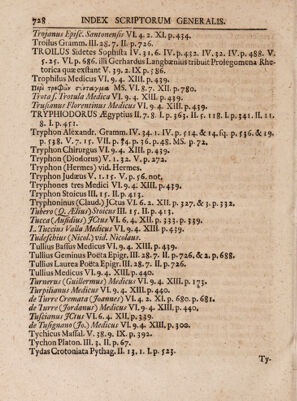 728 INDEX SCRIPTORUM GENERALIS.
Trojanus Episc. Santonensis VI. 4. 2. XI. p. 434.
Troilus Gramm. III. 28. 7. II. p. 726.
TROILUS Sidetes Sophista IV. 31. 6. IV. p. 432. IV. 32. IV. p. 488. V.
5. 25. VI. p. 686. illi Gerhardus Langbænius tribuit Prolegomena Rhe-
torica quæ exstant V. 39. 2. IX p. 586.
Trophilus Medicus VI. 9. 4. XIII. p. 439.
Περὶ τροφῶν σύνταγμα MS. VI. 8. 7. XII. p. 780.
Trota s. Trotula Medica VI. 9. 4. XIII. p. 439.
Trusianus Florentinus Medicus VI. 9. 4. XIII. p. 439.
TRYPHIODORUS Ægyptius II. 7. 8. I. p. 363. II. 5. 118. I. p. 341. II. 11.
8. I. p. 451.
Tryphon Alexandr. Gramm. IV. 34. 1. IV. p. 514. & 14. sq. p. 536. & 19.
p. 538. V. 7. 15. VII. p. 54. p. 36. p. 48. MS. p. 72.
Tryphon Chirurgus VI. 9. 4. XIII. p. 439.
Tryphon (Diodorus) V. 1. 32. V. p. 272.
Tryphon (Hermes) vid. Hermes.
Tryphon Judæus V. 1. 15. V. p. 56. not,
Tryphones tres Medici VI. 9. 4. XIII. p. 439.
Tryphon Stoicus III. 15. II. p. 413.
Tryphoninus (Claud.) JCtus VI. 6. 2. XII. p. 327. & 3. p. 332.
Tubero (Q. Ælius) Stoicus III. 15. II. p. 413.
Tucca (Aufidius) JCtus VI. 6. 4. XII. p. 333. p. 339.
L. Tuccius Valla Medicus VI. 9. 4. XIII. p. 439.
Tudeschius (Nicol.) vid. Nicolaus.
Tullius Bassus Medicus VI. 9. 4. XIII. p. 439.
Tullius Geminus Poëta Epigr. III. 28. 7. II. p. 726. & 2. p. 688.
Tullius Laurea Poëta Epigr. III. 28. 7. II. p. 726.
Tullius Medicus VI. 9. 4. XIII. p. 440.
Turnerus (Guillermus) Medicus VI. 9. 4. XIII. p. 173.
Turpilianus Medicus VI. 9. 4. XIII. p. 440.
de Turre Cremata (Joannes) VI. 4. 2. XI. p. 680. p. 681.
de Turre (Jordanus) Medicus VI. 9. 4. XIII. p. 440.
Tuscianus JCtus VI. 6. 4. XII. p. 339.
de Tusignano (Jo.) Medicus VI. 9. 4. XIII. p. 300.
Tychicus Massal. V. 38. 9. IX. p. 392.
Tychon Platon. III. 3. II. p. 67.
Tydas Crotoniata Pythag. II. 13. 1. I. p. 523.
Ty-